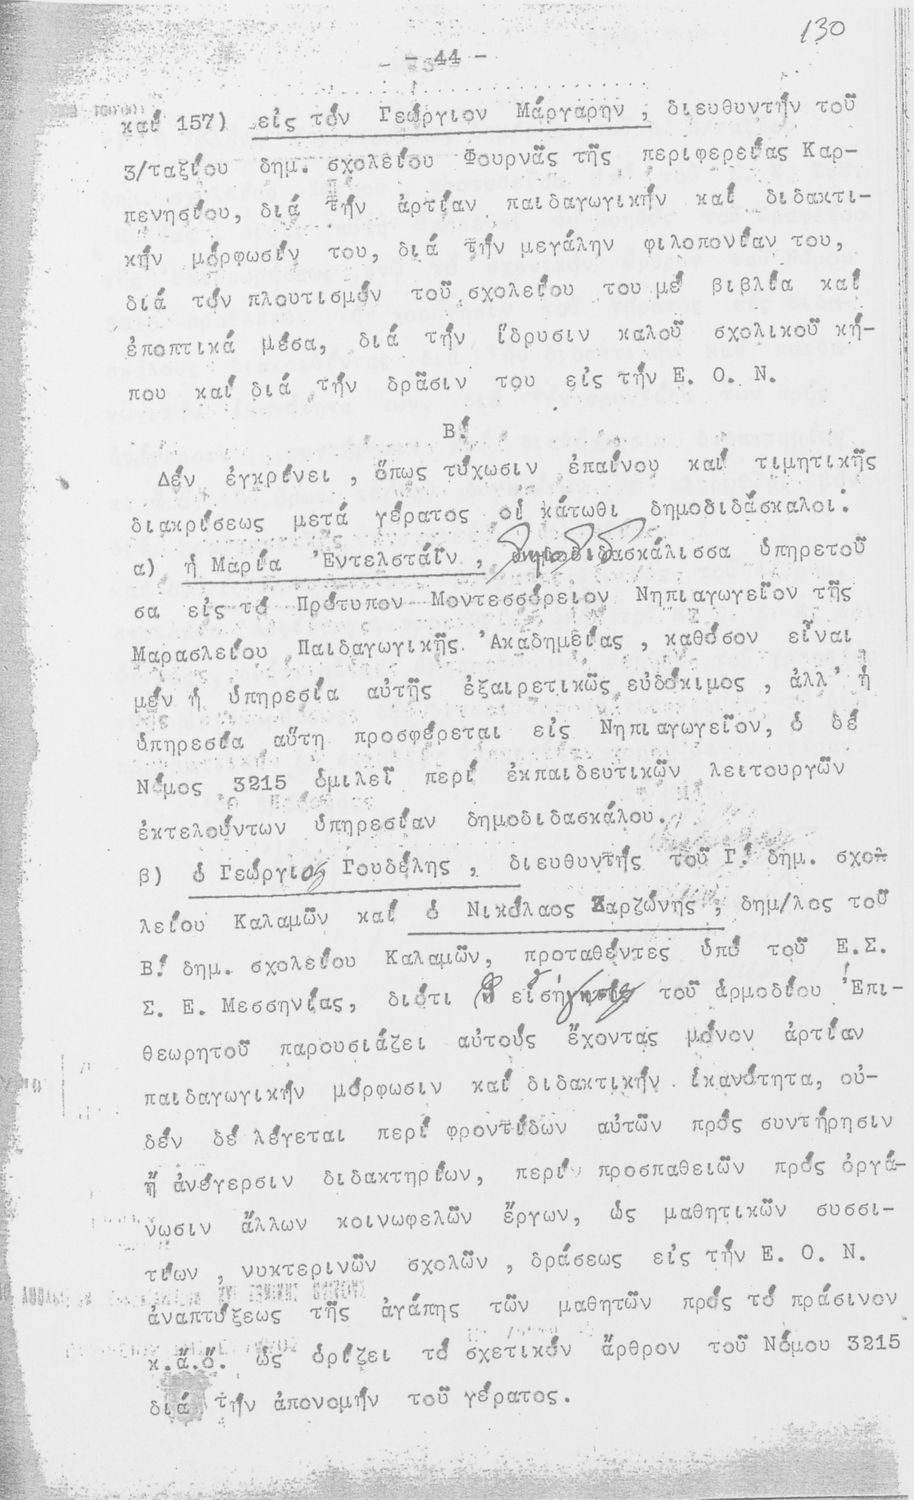 130
- 44 -
καί 157) εἰς τόν Γεώργιον Μάργαρην , διευθυντήν τοῦ
3/ταξίου δημ. σχολείου Φουρνᾶς τῆς περιφερείας Καρ-
πενησίου, διά τήν ἀρτίαν παιδαγωγικήν καί διδακτι-
κήν μόρφωσίν του, διά τήν μεγάλην φιλοπονίαν του,
διά τόν πλουτισμόν τοῦ σχολείου του μέ βιβλία καί
ἐποπτικά μέσα, διά τήν ἵδρυσιν καλοῦ σχολικοῦ κή-
που καί διά τήν δρᾶσιν του εἰς τήν Ε. Ο. Ν.
Β!
Δέν ἐγκρίνει , ὅπως τύχωσιν ἐπαίνου καί τιμητικῆς
διακρίσεως μετά γέρατος οἱ κάτωθι δημοδιδάσκαλοι:
α) ἡ Μαρία Ἐντελστάϊν , δημοδιδασκάλισσα ὑπηρετοῦ
σα εἰς τό Πρότυπον Μοντεσσόρειον Νηπιαγωγεῖον τῆς
Μαρασλείου Παιδαγωγικῆς Ἀκαδημείας , καθόσον εἶναι
μέν ἡ ὑπηρεσία αὐτῆς ἐξαιρετικῶς εὐδόκιμος , ἀλλ' ἡ
ὑπηρεσία αὕτη προσφέρεται εἰς Νηπιαγωγεῖον, ὁ δέ
Νόμος 3215 ὁμιλεῖ περί ἐκπαιδευτικῶν λειτουργῶν
ἐκτελούντων ὑπηρεσίαν δημοδιδασκάλου.
β) ὁ Γεώργιος Γουδέλης , διευθυντής τοῦ Γ! δημ. σχο-
λείου Καλαμῶν καί ὁ Νικόλαος Ζαρζώνης , δημ/λος τοῦ
Β! δημ. σχολείου Καλαμῶν, προταθέντες ὑπό τοῦ Ε.Σ.
Σ. Ε. Μεσσηνίας, διότι ἡ εἰσήγησις τοῦ ἁρμοδίου Ἐπι-
θεωρητοῦ παρουσιάζει αὐτούς ἔχοντας μόνον ἀρτίαν
παιδαγωγικήν μόρφωσιν καί διδακτικήν ἱκανότητα, οὐ-
δέν δέ λέγεται περί φροντίδων αὐτῶν πρός συντήρησιν
ἤ ἀνέγερσιν διδακτηρίων, περί προσπαθειῶν πρός ὀργά-
νωσιν ἄλλων κοινωφελῶν ἔργων, ὡς μαθητικῶν συσσι-
τίων , νυκτερινῶν σχολῶν , δράσεως εἰς τήν Ε. Ο. Ν.
ἀναπτύξεως τῆς ἀγάπης τῶν μαθητῶν πρός τό πράσινον
κ.ἄ.ὅ. ὡς ὁρίζει τό σχετικόν ἄρθρον τοῦ Νόμου 3215
διά τήν ἀπονομήν τοῦ γέρατος.